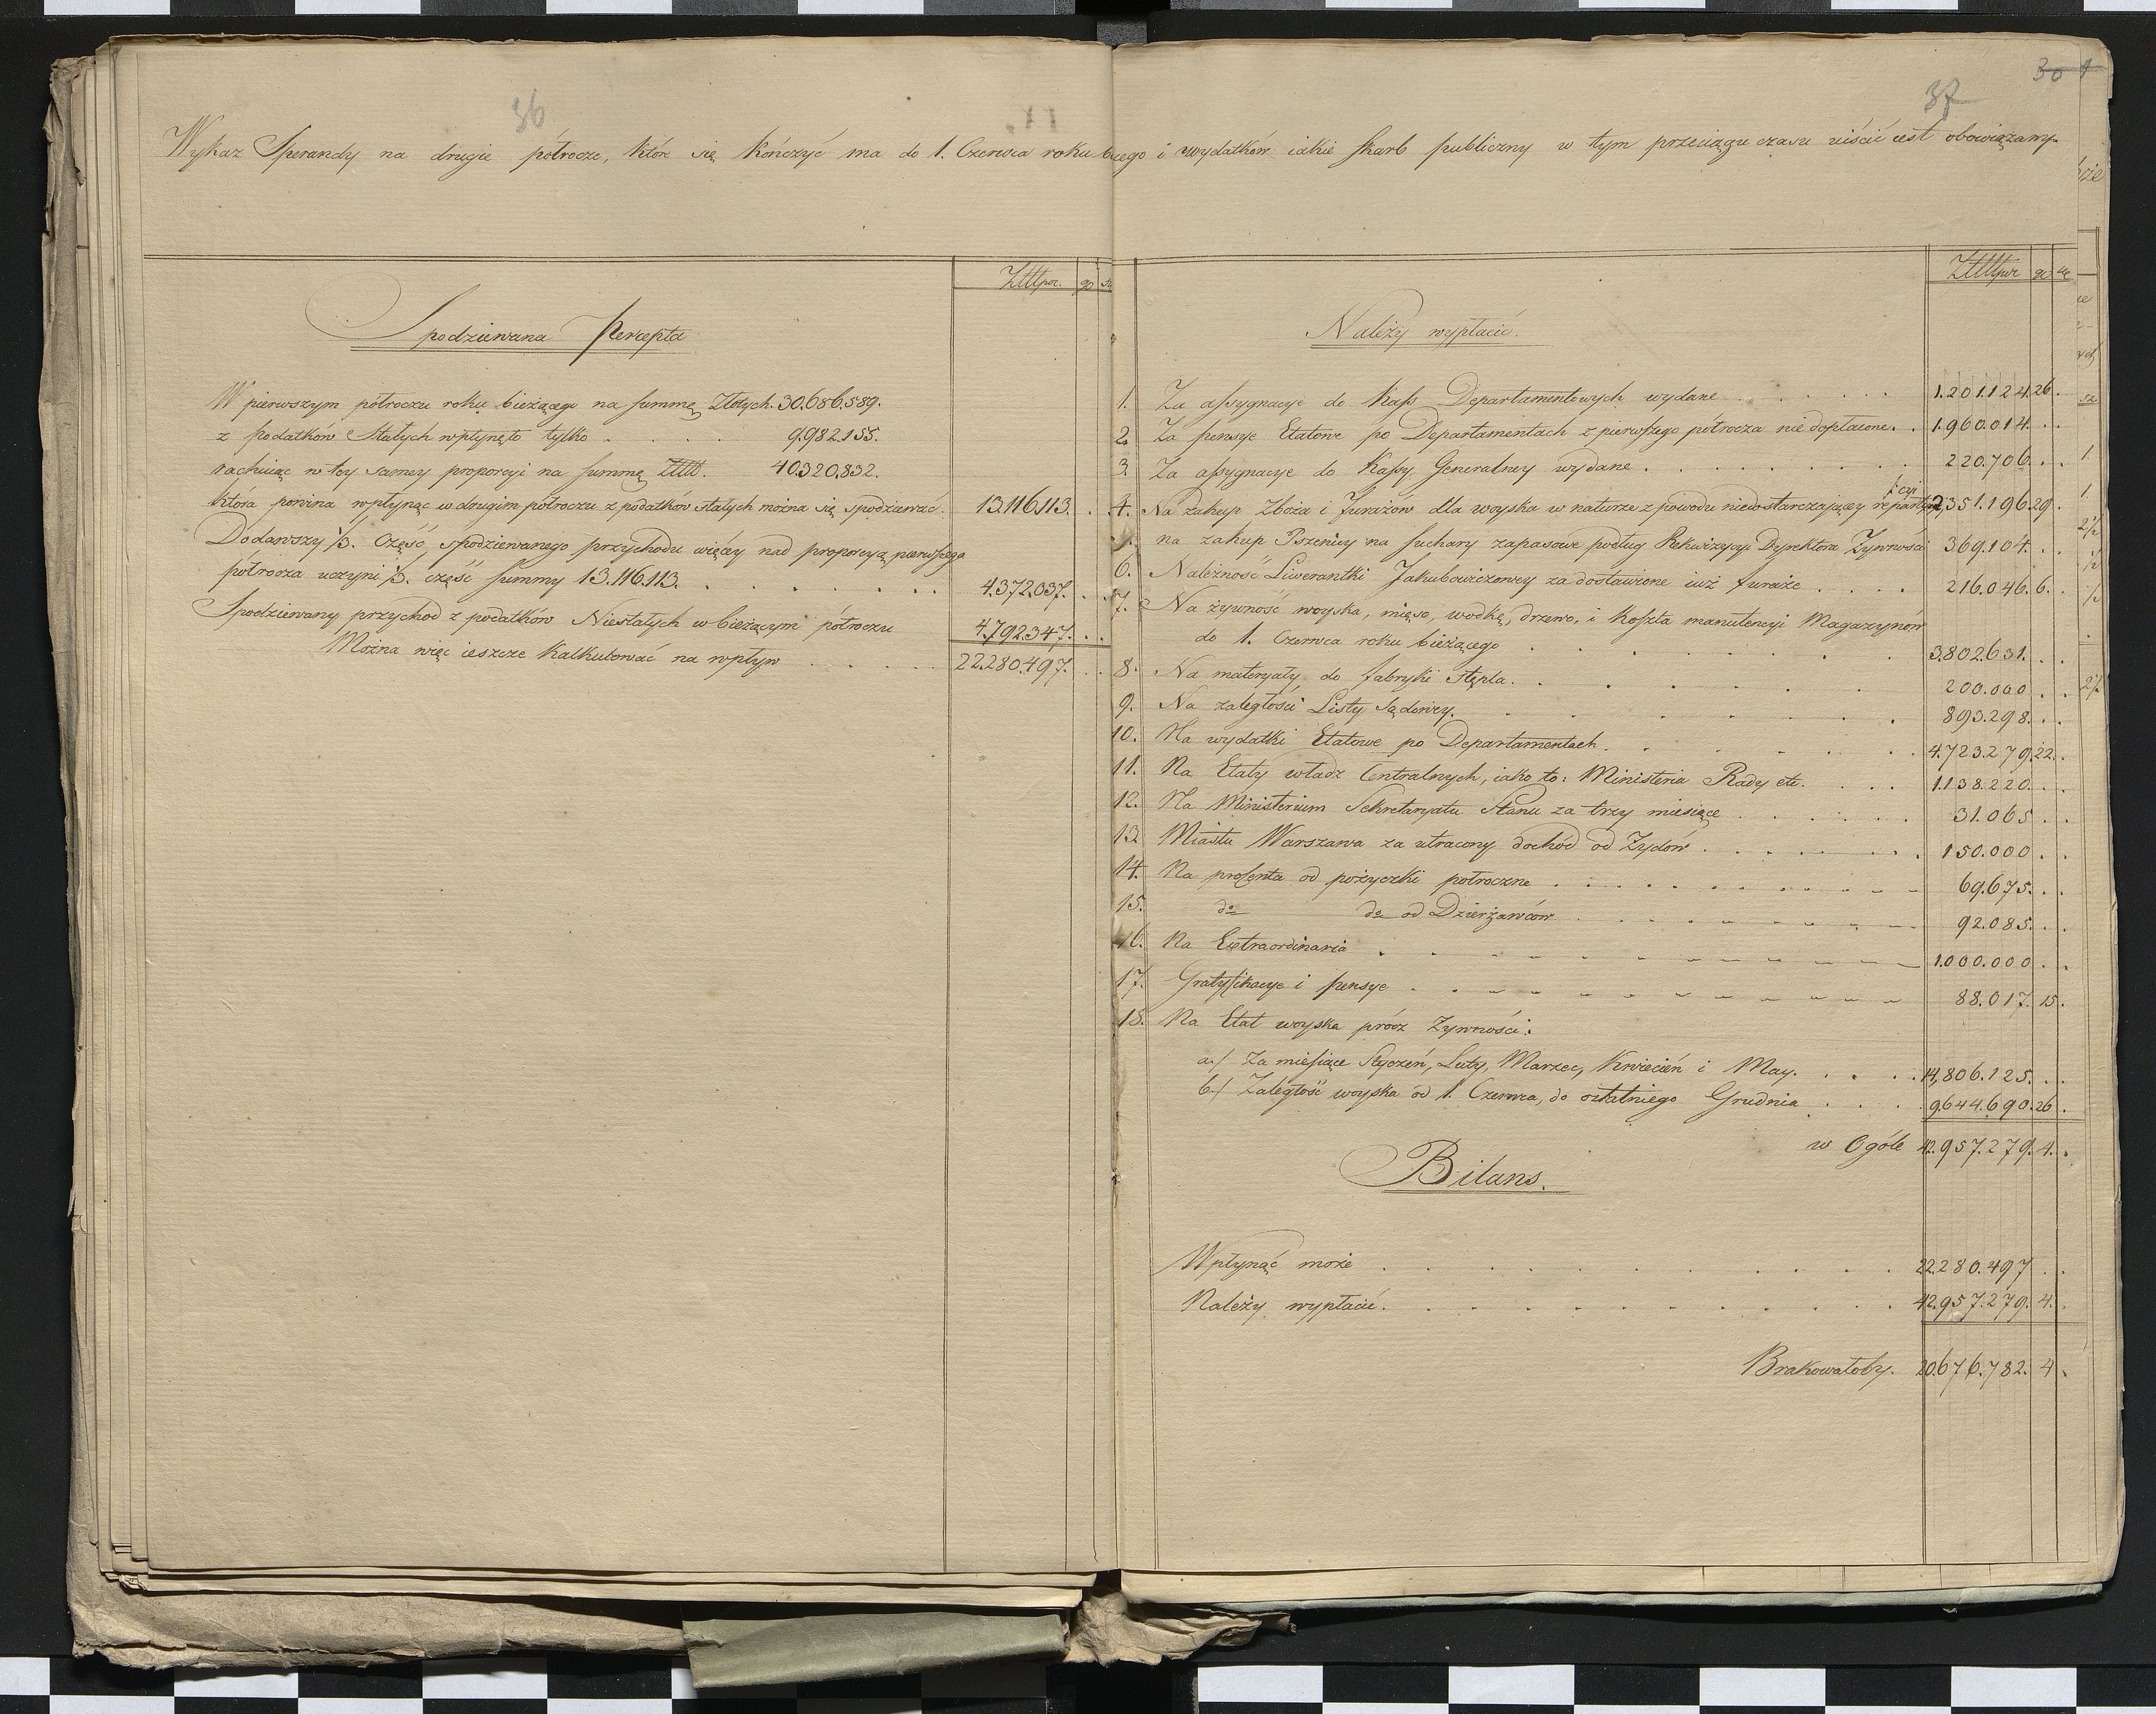 36
37
30
Wykaz Sperandy na drugie półrocze, które się kończyć ma do 1. Czerwca roku bieżącego i wydatków iakie skarb publiczny w tym przeciągu czasu uiścić iest obowiązany.
gr
Spodziewana Percepta
W pierwszym półroczu roku bieżącego na summę Złotych. 30.686.589.
z podatków Stałych wpłynęło tylko . . . . 9.982.155.
rachuiąc w tey samey proporcyi na summę 40.320.832.
która powina wpłynąc w drugim półroczu z podatków stałych można się spodziewać. 13.116.113. .
Dodawszy 1/3. Część, spodziewanego przychodu więcey nad proporcyą pierwszego
półrocza uczyni 1/3. część summy 13.116.113. . . . . . . . 4.372.037. . .
Spodziewany przychod z podatków Niestałych w bieżącym półroczu 4.792.347. . .
Można więc ieszcze kalkulować na wpływ . . . . . 22.280.497. . .
gr
Należy wypłacić.
1. Za assygnacye do Kass Departamentowych wydane . . . . . . 1.201.124. 26.
2. Za pensye Etatowe po Departamentach z pierwszego półrocza nie dopłacone. . 1.960.014. . .
3. Za assygnacye do Kassy Generalney wydane . . . . . . . . 220.706. . .
4. Na zakup Zboża i Furażów dla woyska w naturze z powodu niedostarczaiącey repartycyi 2,351.196. 29.
5. na zakup Pszenicy na suchary zapasowe podług Rekwizycyi Dyrektora Zywności 369.104. . .
6. Należność Liwerantki Jakubowiczowey za dostawione iuż furaże . . . . 216.046. 6. .
7. Na żywność woyska, mięso, wodkę, drzewo, i Koszta manutencyi Magazynów
do 1. Czerwca roku bieżącego . . . . . . . 3.802.631. . .
8. Na materyały do fabryki Stępla. . . . . . . 200.000 . .
9. Na zaległości Listy Sądowey. . . . . . . . 893.298. . .
10. Na wydatki Etatowe po Departamentach. . . . . . . 4.723.279. 22. .
11. Na Etaty władz Centralnych, iako to: Ministeria Rady etc. . . . 1.138.220. . .
12. Na Ministerium Sekretaryatu Stanu za trzy miesiące . . . . . . 31.065 . .
13. Miastu Warszawa za utracony dochód od Zydów . . . . . . . 150.000 . .
14. Na procenta od pożyczki połroczne . . . . . . . . . 69.675. . .
15. do do od Dzierżawców . . . . . . . . 92.085. . .
16. Na Extraordinaria . . . . . . . . . . 1.000.000 . .
17. Gratyfikacye i pensye . . . . . . . . . . 88.017. 15.
18. Na Etat woyska prócz Zywności:
a./ Za miesiące Styczeń, Luty, Marzec, Kwiecień i May. . . . . 14,806.125. . .
b./ Zaległość woyska od 1. Czerwca, do ostatniego Grudnia . . . . 9.644.690. 26 .
w Ogóle 42.957.279. 4. .
Bilans.
Wpłynąć może . . . . . . . . . . 22.280.497 . .
Należy wypłacić. . . . . . . . . . . 42.957.279. 4. .
Brakowałoby. 20.676.782. 4 .